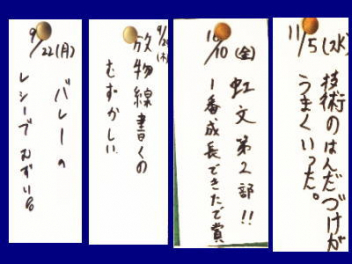 9/22(月)
バレーの
レシーブ むずい。
9/24(木)
放物線書くの
むずかしい
10/10(金)
虹文第2部!!
1番成長できたで賞
11/5(水)
技術のはんだづけが
うまくいった。